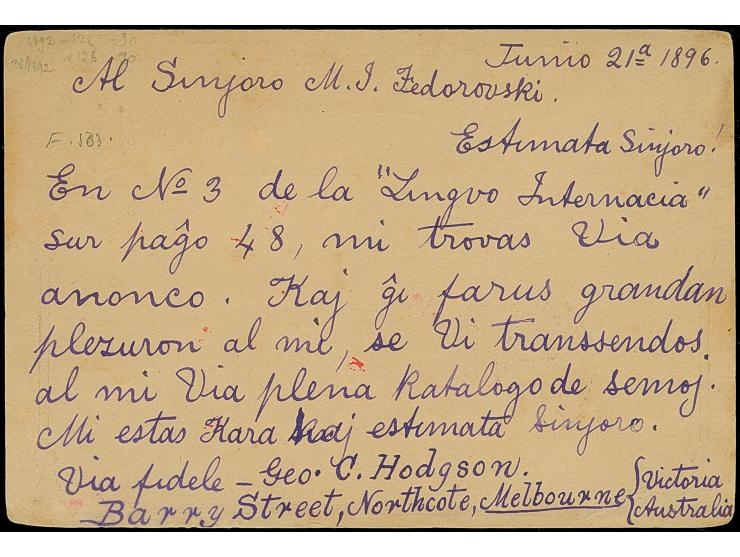 Junio 21ª 1896.
Al Sinjoro M. J. Fedorovski.
F. 583.
Estimata Sinjoro!
En No 3 de la "Lingvo Internacia"
sur paĝo 48, mi trovas Via
anonco. Kaj ĝi farus grandan
plezuron al mi, se Vi transsendos
al mi Via plena Katalogo de semoj.
Mi estas Kara kaj estimata Sinjoro.
Via fidele – Geo. C. Hodgson.
Barry Street, Northcote, Melbourne { Victoria
Australia